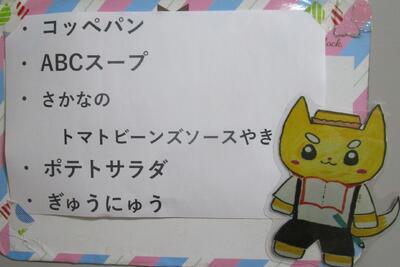 ・ コッペパン
・ ABCスープ
・ さかなの
トマトビーンズソースやき
・ ポテトサラダ
・ ぎゅうにゅう